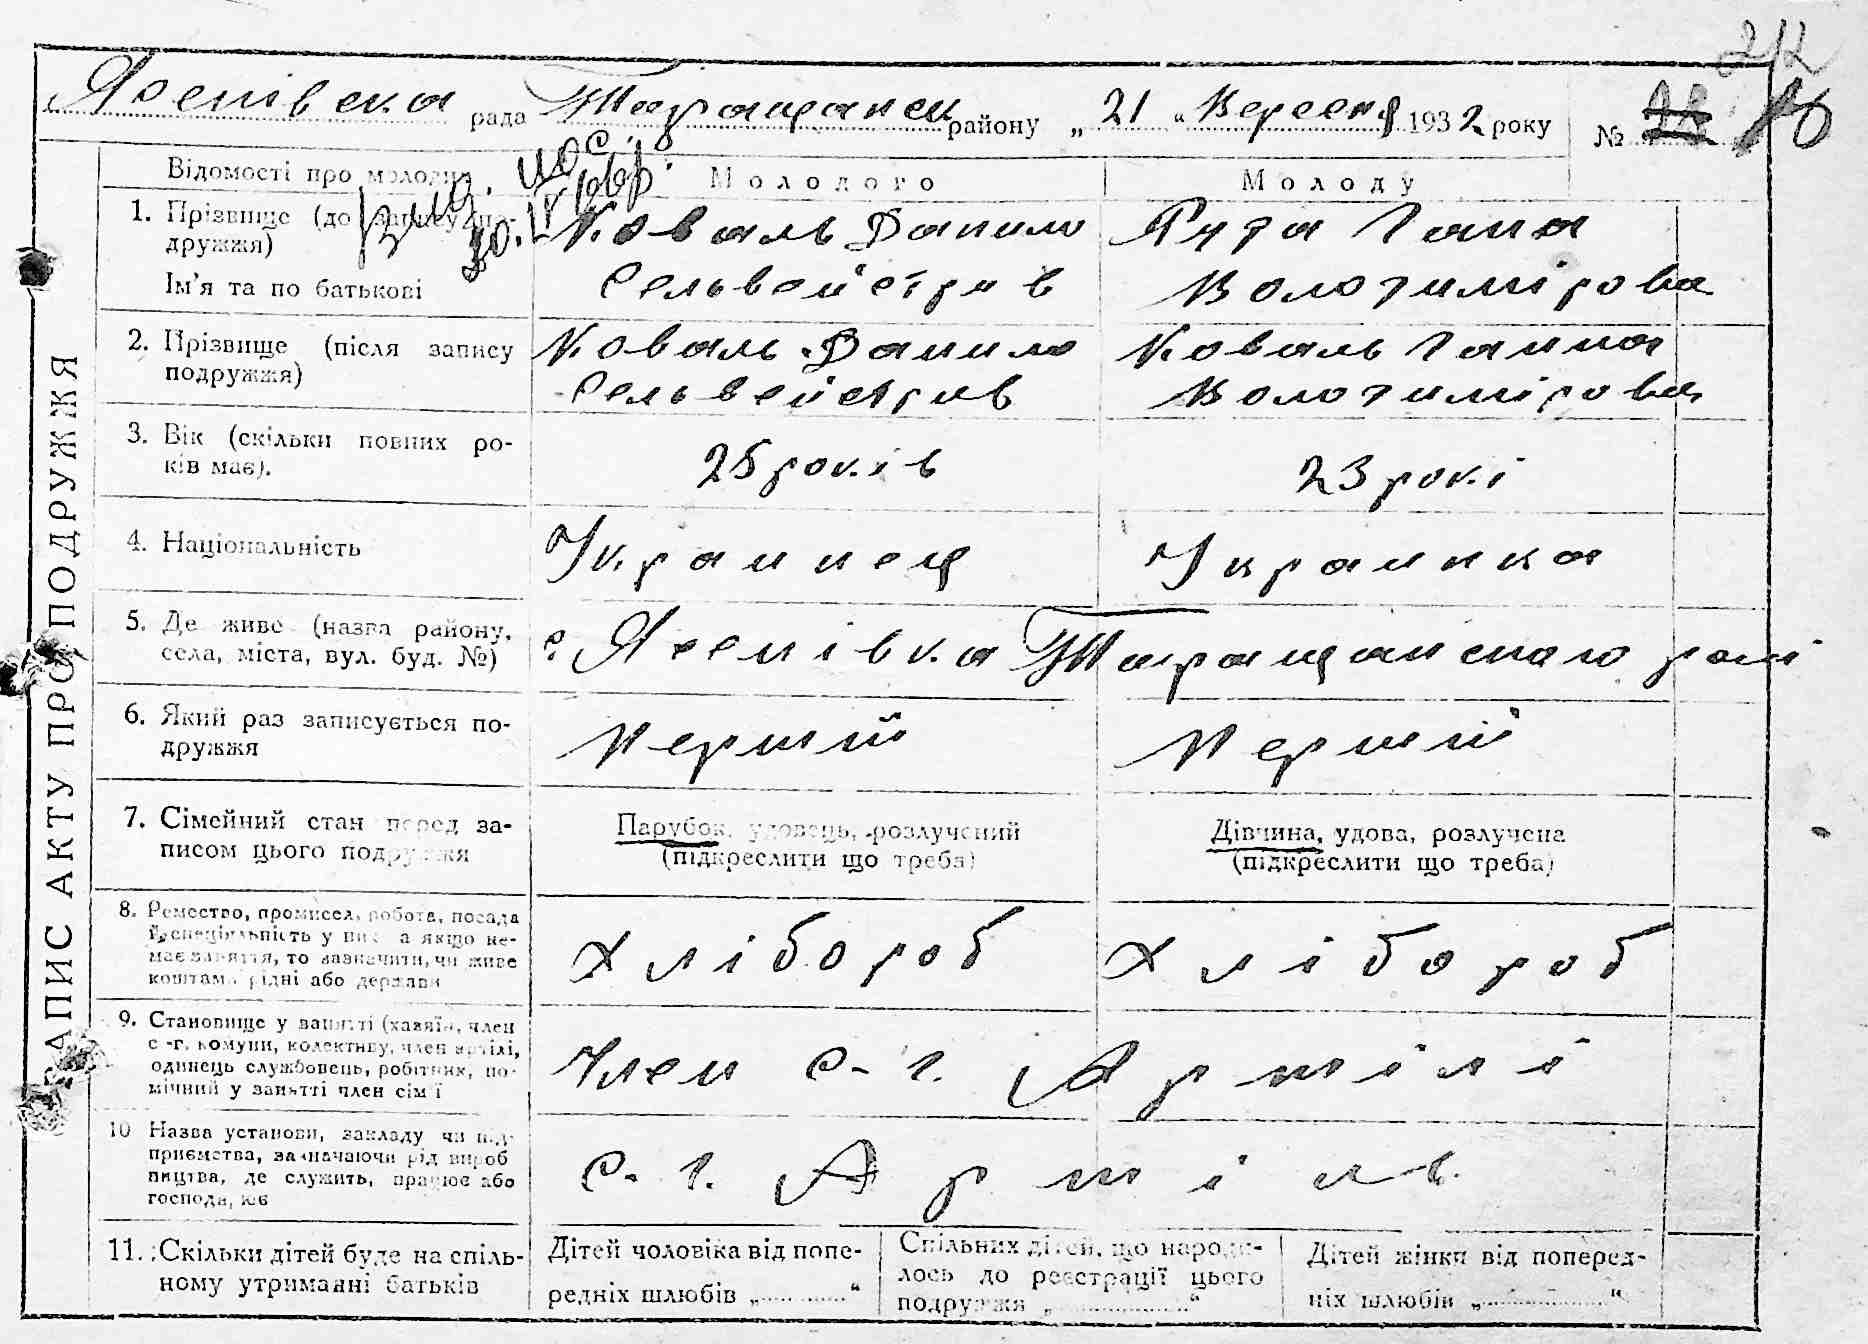 212
Ясенівска рада Таращанск району „21“ Вересня 1932 року № 16
Відомості про молодих
Молодого Молоду
ЗАПИС АКТУ ПРО ПОДРУЖЖЯ
1. Прізвище (до запису по-
дружжя)
Ім'я та по батькові
Коваль Данило
Сельвейстрів
Рута Гана
Волотимірова
2. Прізвище (після запису
подружжя)
Коваль Данило
Сельвейстрів
Коваль Ганна
Волотимірова
3. Вік (скільки повних ро-
ків має).
25 років
23 рокі
4. Національність
Украинец
Украинка
5. Де живе (назва району,
села, міста, вул. буд. №)
с. Ясенівка Таращанского
6. Який раз записується по-
дружжя
Перший
Перший
7. Сімейний стан перед за-
писом цього подружжя
Парубок, удовець, розлучений
(підкреслити що треба)
Дівчина, удова, розлучена
(підкреслити що треба)
8. Ремество, промисел, робота, посада
й спеціяльність у ній а якщо не-
має заняття, то зазначити, чи живе
коштами рідні або держави
Хлібороб
Хлібороб
9. Становище у занятті (хазяїн, член
с.-г. комуни, колективу, член артілі,
одинець службовець, робітник, по-
мічний у занятті член сім'ї
Член с.-г. Артілі
10 Назва установи, закладу чи під-
приємства, зазначаючи рід вироб
ництва, де служить, працює або
господарює
с.-г. Артіль.
11. Скільки дітей буде на спіль-
ному утриманні батьків
Дітей чоловіка від попе-
редніх шлюбів „............“
Спільних дітей, що народи-
лось до реєстрації цього
подружжя „............“
Дітей жінки від поперед-
ніх шлюбів „............“